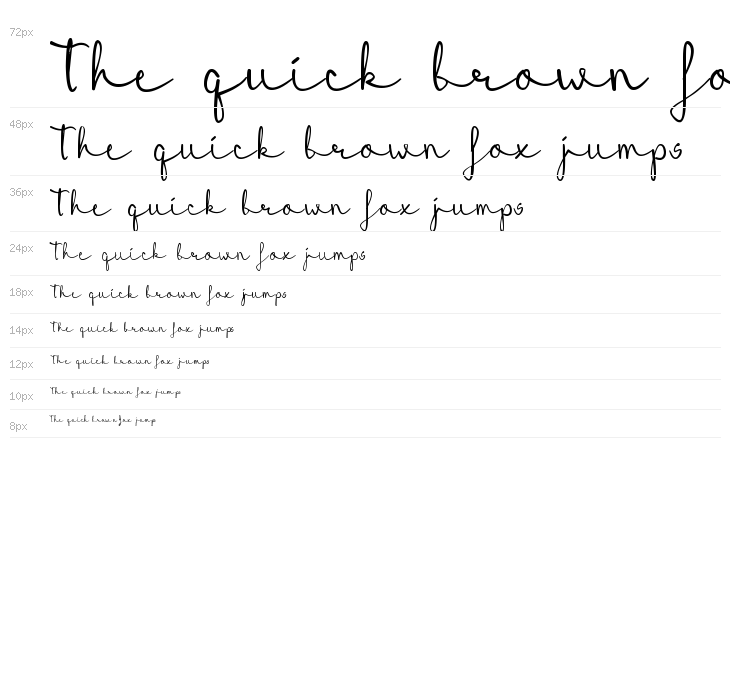 72px
The quick brown fo
48px
The quick brown fox jumps
36px
The quick brown fox jumps
24px
The quick brown fox jumps
18px
The quick brown fox jumps
14px
The quick brown fox jumps
12px
The quick brown fox jumps
10px
The quick brown fox jumps
8px
The quick brown fox jumps